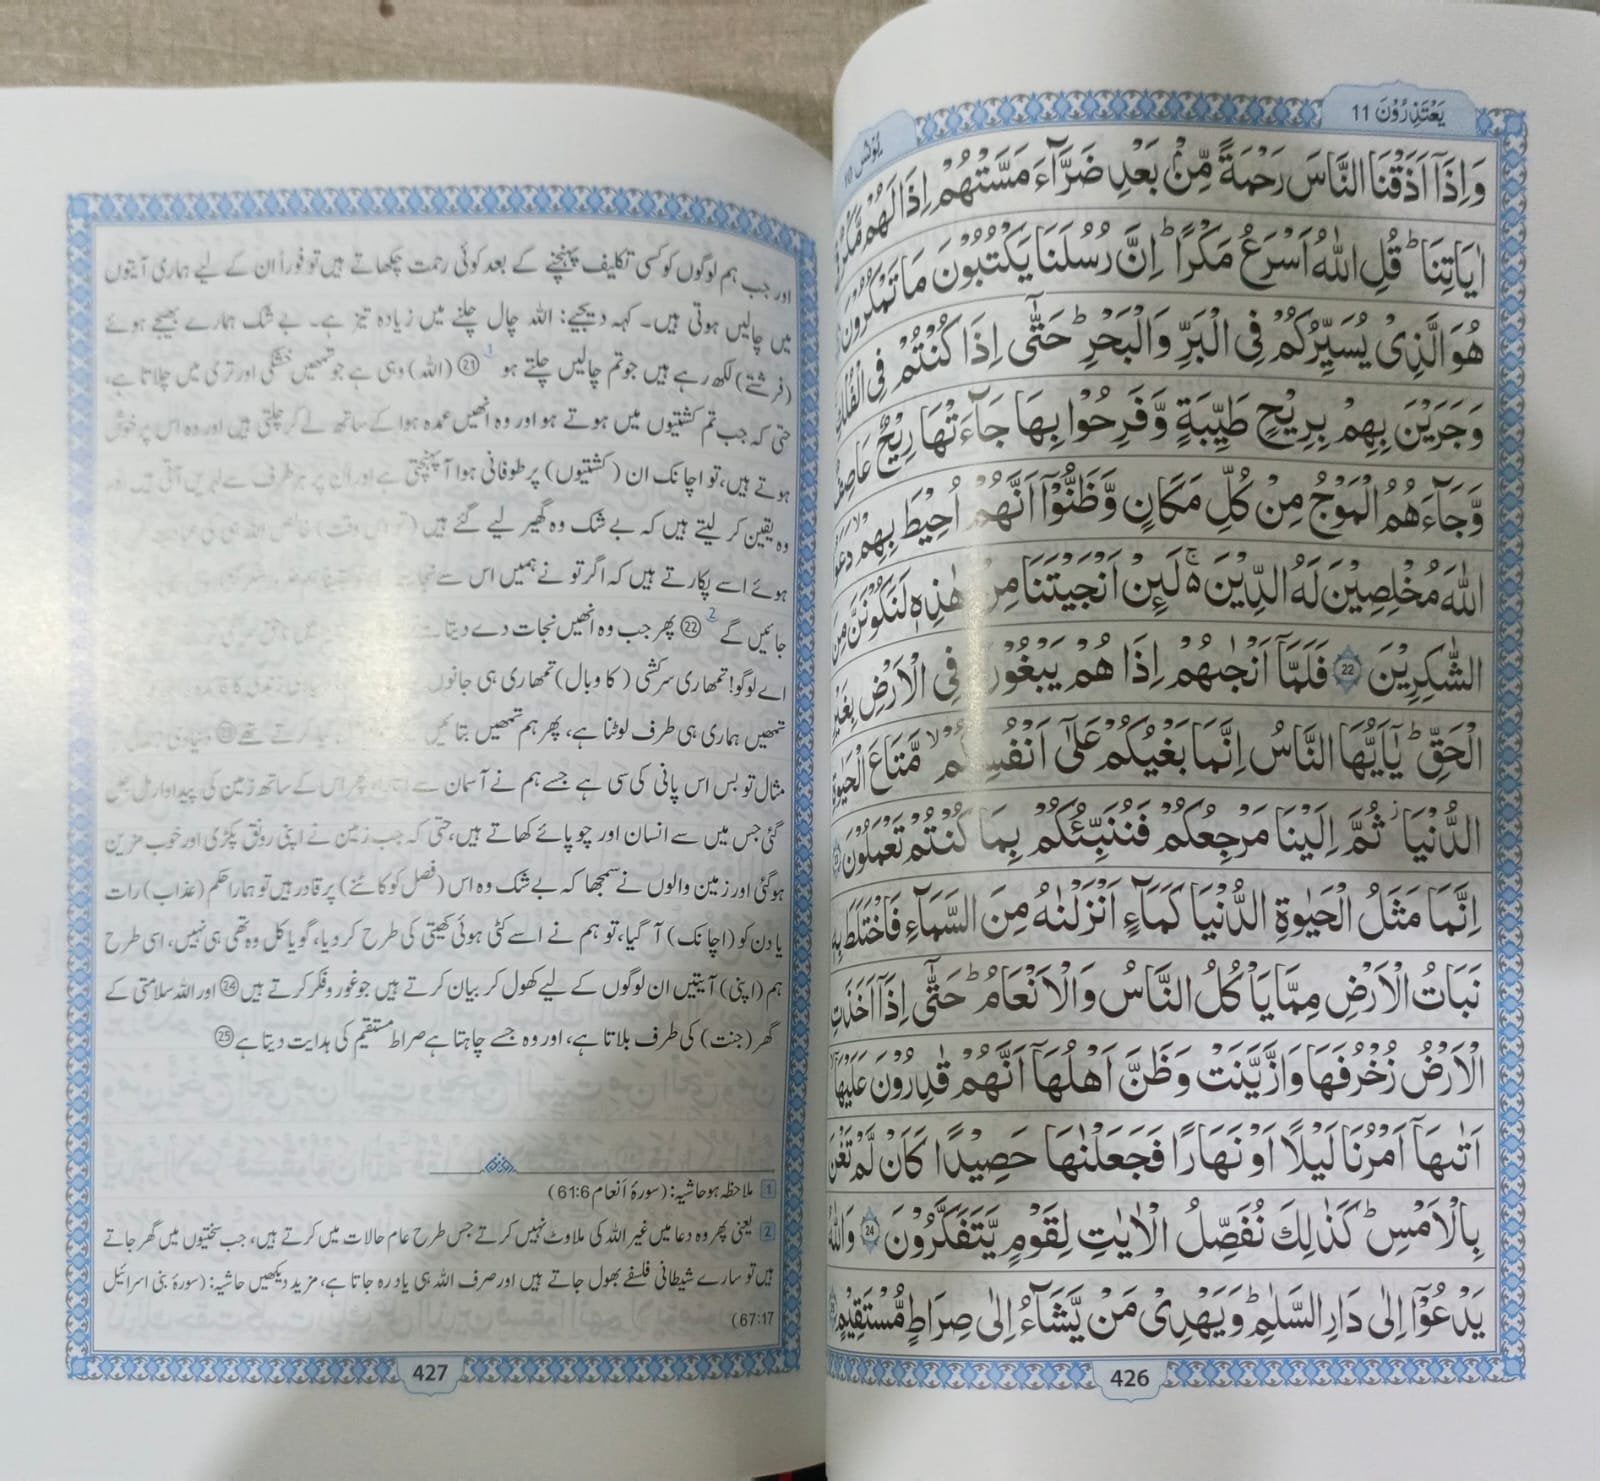 يَعْتَذِرُوْنَ 11
يُوْنُس 10
وَاِذَاۤ اَذَقْنَا النَّاسَ رَحْمَةً مِّنْۢ بَعْدِ ضَرَّآءَ مَسَّتْهُمْ اِذَا لَهُمْ مَّكْرٌ
اٰيَاتِنَا ؕ قُلِ اللّٰهُ اَسْرَعُ مَكْرًا ؕ اِنَّ رُسُلَنَا يَكْتُبُوْنَ مَا تَمْكُرُوْنَ
هُوَ الَّذِىْ يُسَيِّرُكُمْ فِى الْبَرِّ وَالْبَحْرِ ؕ حَتّٰۤى اِذَا كُنْتُمْ فِى الْفُلْكِ
وَجَرَيْنَ بِهِمْ بِرِيْحٍ طَيِّبَةٍ وَّفَرِحُوْا بِهَا جَآءَتْهَا رِيْحٌ عَاصِفٌ
وَّجَآءَهُمُ الْمَوْجُ مِنْ كُلِّ مَكَانٍ وَّظَنُّوْۤا اَنَّهُمْ اُحِيْطَ بِهِمْ ۙ دَعَوُا
اللّٰهَ مُخْلِصِيْنَ لَهُ الدِّيْنَ ۚ۬ لَئِنْ اَنْجَيْتَنَا مِنْ هٰذِهٖ لَنَكُوْنَنَّ مِنَ
الشّٰكِرِيْنَ 22 فَلَمَّاۤ اَنْجٰىهُمْ اِذَا هُمْ يَبْغُوْنَ فِى الْاَرْضِ بِغَيْرِ
الْحَقِّ ؕ يٰۤاَيُّهَا النَّاسُ اِنَّمَا بَغْيُكُمْ عَلٰۤى اَنْفُسِكُمْ ۙ مَّتَاعَ الْحَيٰوةِ
الدُّنْيَا ؗ ثُمَّ اِلَيْنَا مَرْجِعُكُمْ فَنُنَبِّئُكُمْ بِمَا كُنْتُمْ تَعْمَلُوْنَ 23
اِنَّمَا مَثَلُ الْحَيٰوةِ الدُّنْيَا كَمَآءٍ اَنْزَلْنٰهُ مِنَ السَّمَآءِ فَاخْتَلَطَ بِهٖ
نَبَاتُ الْاَرْضِ مِمَّا يَاْكُلُ النَّاسُ وَالْاَنْعَامُ ؕ حَتّٰۤى اِذَاۤ اَخَذَتِ
الْاَرْضُ زُخْرُفَهَا وَازَّيَّنَتْ وَظَنَّ اَهْلُهَاۤ اَنَّهُمْ قٰدِرُوْنَ عَلَيْهَاۤ
اَتٰىهَاۤ اَمْرُنَا لَيْلًا اَوْ نَهَارًا فَجَعَلْنٰهَا حَصِيْدًا كَاَنْ لَّمْ تَغْنَ
بِالْاَمْسِ ؕ كَذٰلِكَ نُفَصِّلُ الْاٰيٰتِ لِقَوْمٍ يَّتَفَكَّرُوْنَ 24 وَاللّٰهُ
يَدْعُوْۤا اِلٰى دَارِ السَّلٰمِ ؕ وَيَهْدِىْ مَنْ يَّشَآءُ اِلٰى صِرَاطٍ مُّسْتَقِيْمٍ 25
426
اور جب ہم لوگوں کو کسی تکلیف پہنچنے کے بعد کوئی رحمت چکھاتے ہیں تو فوراً ان کے لیے ہماری آیتوں
میں چالیں ہوتی ہیں۔ کہہ دیجیے: اللہ چال چلنے میں زیادہ تیز ہے۔ بے شک ہمارے بھیجے ہوئے
(فرشتے) لکھ رہے ہیں جو تم چالیں چلتے ہو 1 21 (اللہ) وہی ہے جو تمھیں خشکی اور تری میں چلاتا ہے،
حتی کہ جب تم کشتیوں میں ہوتے ہو اور وہ انھیں عمدہ ہوا کے ساتھ لے کر چلتی ہیں اور وہ اس پر خوش
ہوتے ہیں، تو اچانک ان (کشتیوں) پر طوفانی ہوا آ پہنچتی ہے اور ان پر ہر طرف سے لہریں آتی ہیں اور
وہ یقین کر لیتے ہیں کہ بے شک وہ گھیر لیے گئے ہیں (تو اس وقت) خالص اللہ ہی کی
ہوئے اسے پکارتے ہیں کہ اگر تو نے ہمیں اس سے نجات
جائیں گے 2 22 پھر جب وہ انھیں نجات دے دیتا
اے لوگو! تمھاری سرکشی (کا وبال) تمھاری ہی جانوں
تمھیں ہماری ہی طرف لوٹنا ہے، پھر ہم تمھیں بتائیں کرتے تھے 23
مثال تو بس اس پانی کی سی ہے جسے ہم نے آسمان سے اتارا، پھر اس کے ساتھ زمین کی پیداوار مل جل
گئی جس میں سے انسان اور چوپائے کھاتے ہیں، حتی کہ جب زمین نے اپنی رونق پکڑی اور خوب مزین
ہو گئی اور زمین والوں نے سمجھا کہ بے شک وہ اس (فصل کو کاٹنے) پر قادر ہیں تو ہمارا حکم (عذاب) رات
یا دن کو (اچانک) آ گیا، تو ہم نے اسے کٹی ہوئی کھیتی کی طرح کر دیا، گویا کل وہ تھی ہی نہیں، اسی طرح
ہم (اپنی) آیتیں ان لوگوں کے لیے کھول کر بیان کرتے ہیں جو غور و فکر کرتے ہیں 24 اور اللہ سلامتی کے
گھر (جنت) کی طرف بلاتا ہے، اور وہ جسے چاہتا ہے صراط مستقیم کی ہدایت دیتا ہے 25
1 ملاحظہ ہو حاشیہ: (سورۂ اَنعام 61:6)
2 یعنی پھر وہ دعا میں غیر اللہ کی ملاوٹ نہیں کرتے جس طرح عام حالات میں کرتے ہیں، جب سختیوں میں گھر جاتے
ہیں تو سارے شیطانی فلسفے بھول جاتے ہیں اور صرف اللہ ہی یاد رہ جاتا ہے، مزید دیکھیں حاشیہ: (سورۂ بنی اسرائیل
67:17)
427